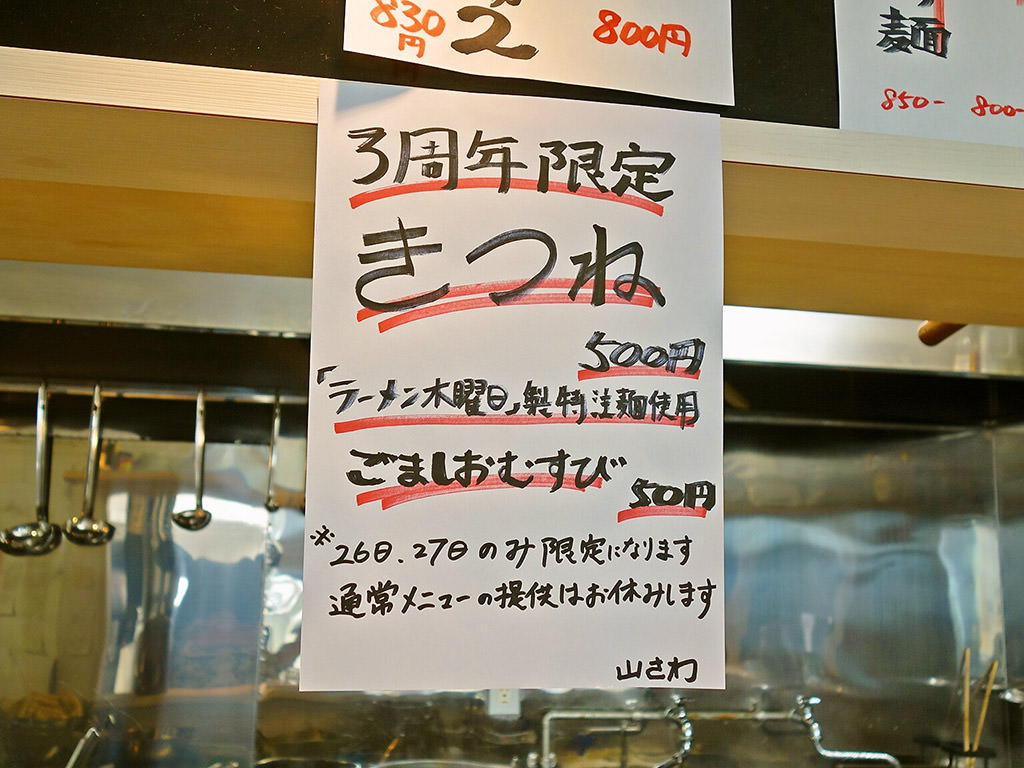 830円
800円
麺
850-
800-
3周年限定
きつね
500円
「ラーメン木曜日」製特注麺使用
ごましおむすび
50円
※26日、27日のみ限定になります
通常メニューの提供はお休みします
山さわ